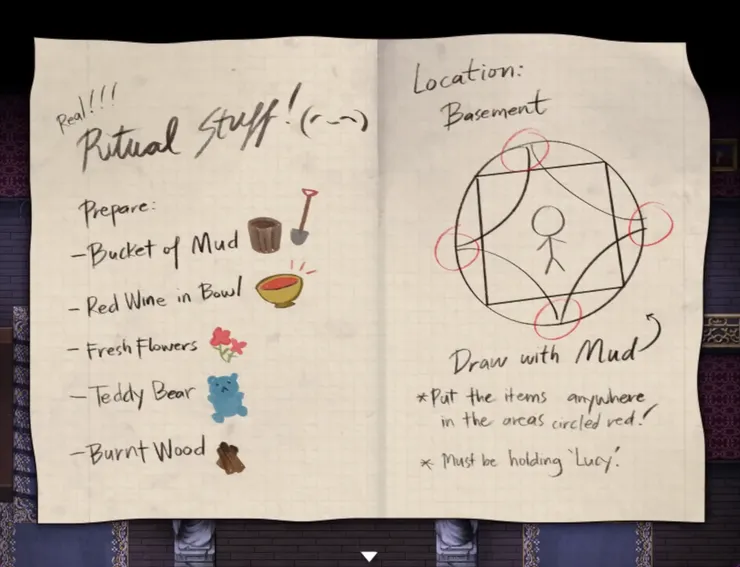 Real!!!
Ritual Stuff! (
Prepare:
-Bucket of Mud
-Red Wine in Bowl
-Fresh Flowers
-Teddy Bear
-Burnt Wood
Location:
Basement
Draw with Mud
*Put the items anywhere
in the areas circled red!
* Must be holding 'Lucy'.